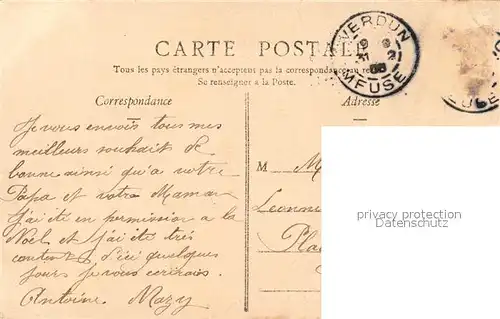 CARTE POSTALE
VERDUN
MEUSE
Tous les pays étrangers n'acceptent pas la correspondance au
Se renseigner à la Poste.
Correspondance
Adresse
Je vous envois tous mes
meilleurs souhait de
bonne ainsi qu'a votre
Papa et votre Maman
J'ai ete en permission a la
Noël et j'ai ete très
content d'ici quelques
jours je vous ecrirais.
Antoine Mazy
M
Leonne
Pla
privacy protection
Datenschutz